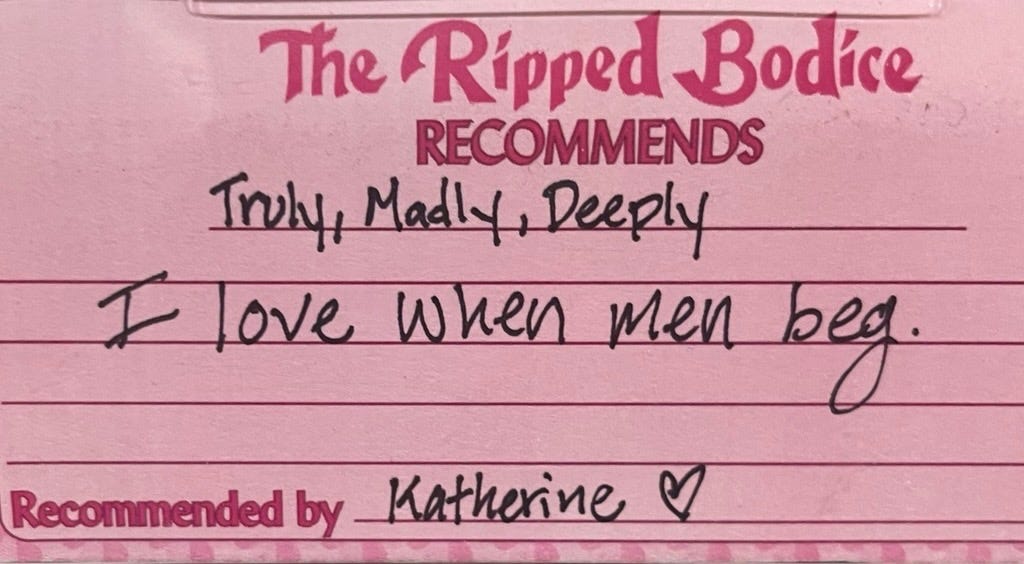 The Ripped Bodice
RECOMMENDS
Truly, Madly, Deeply
I love when men beg.
Recommended by Katherine ♡